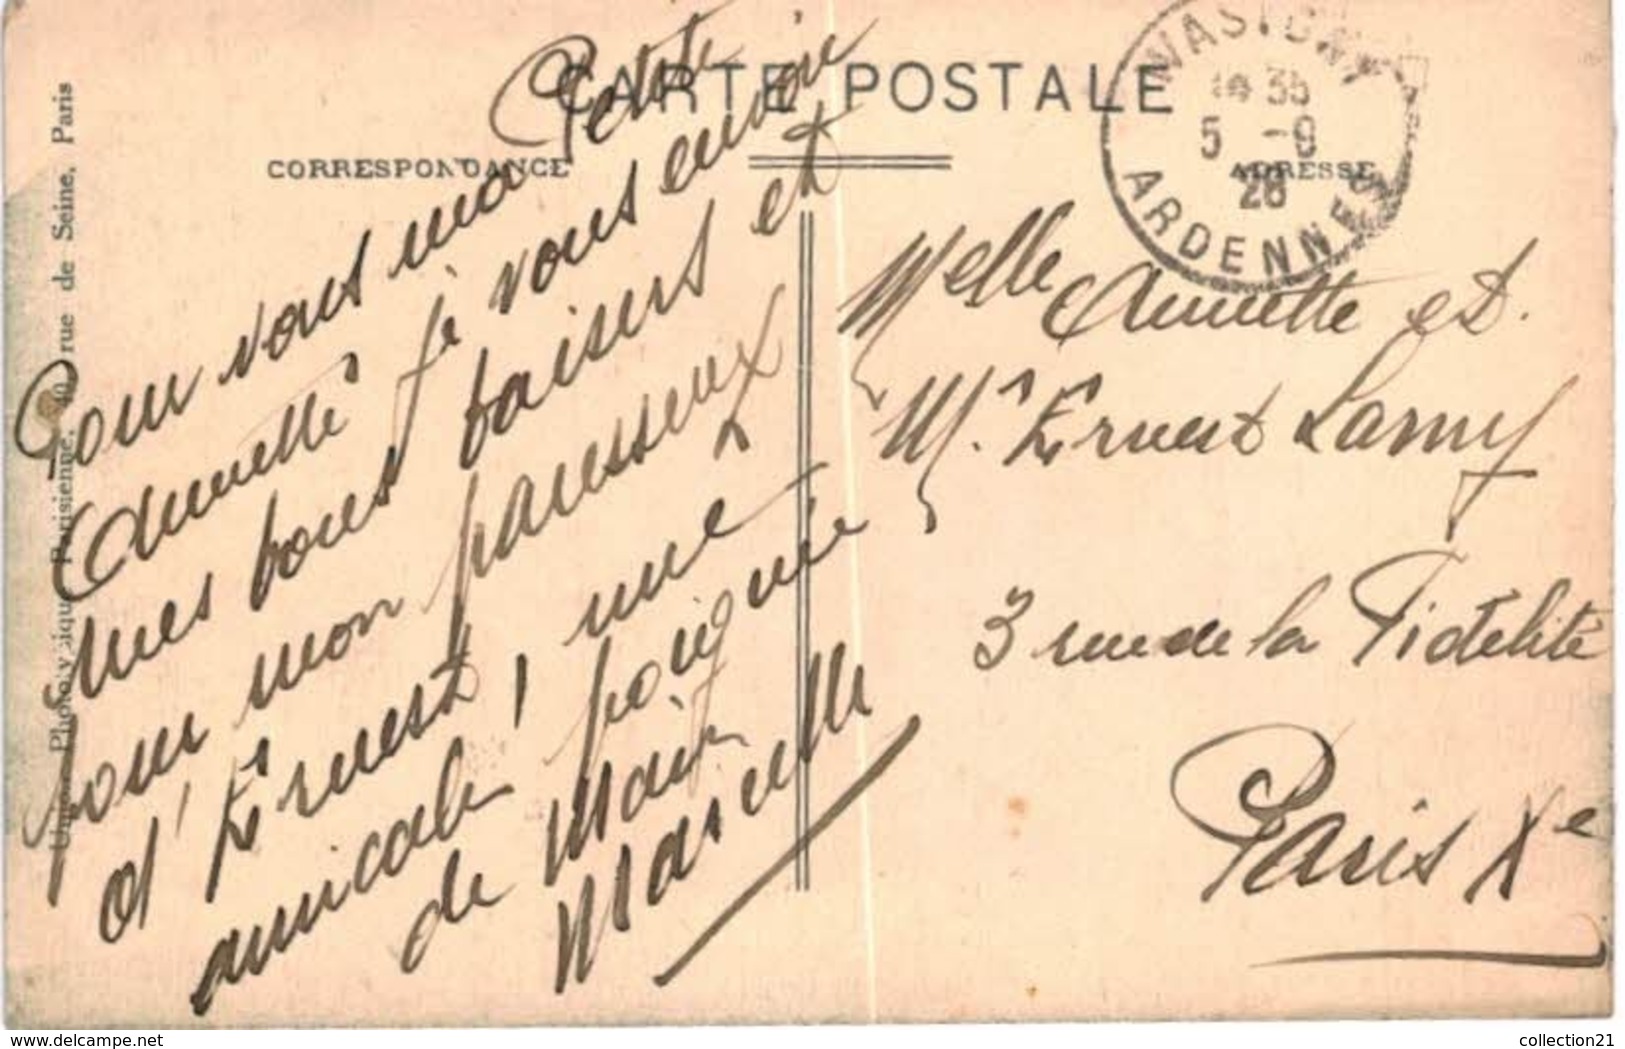 CARTE POSTALE
CORRESPONDANCE
ADRESSE
WASIGNY
35
5 -9
28
ARDENNES
Pour vous ma Petite
Annette je vous envoie
mes bons baisers et
pour mon paresseux
d'Ernest, une
amicale poignée
de main
Marcelle
Melle Annette et
Mr Ernest Lamy
3 rue de la Fidélité
Paris Xe
Phototypique Parisienne, 40, rue de Seine, Paris
www.delcampe.net
collection21